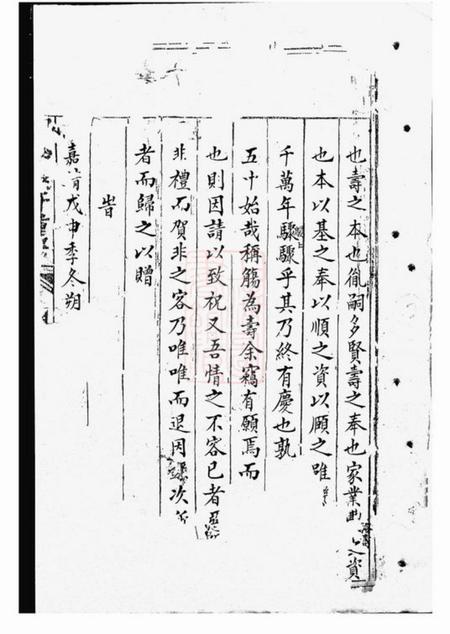 也壽之本也胤嗣多賢壽之奉也家業 壽之資
也本以基之奉以順之資以頤之唯
千萬年驟驟乎其乃終有慶也孰
五十始哉稱觴為壽余竊有願焉而
也則因請以致祝又吾情之不容已者
非禮而賀非之容乃唯唯而退因 次
者而歸之以贈
旹
嘉靖戊申季冬朔